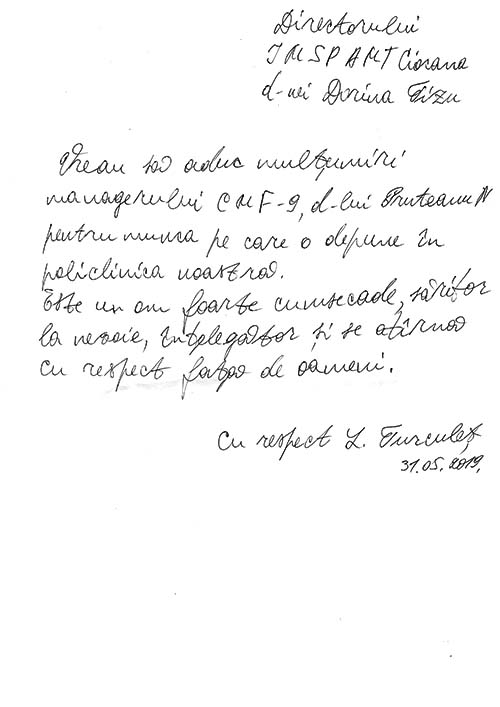 Directorului
IMSP AMT Ciocana
d-nei Dorina Tizu
Vreau să aduc mulțumiri
managerului CMF-9, d-lui Pruteanu N
pentru munca pe care o depune în
policlinica noastră.
Este un om foarte cumsecade, săritor
la nevoie, înțelegător și se atîrnă
cu respect față de oameni.
Cu respect L. Țurculeț
31.05.2019.